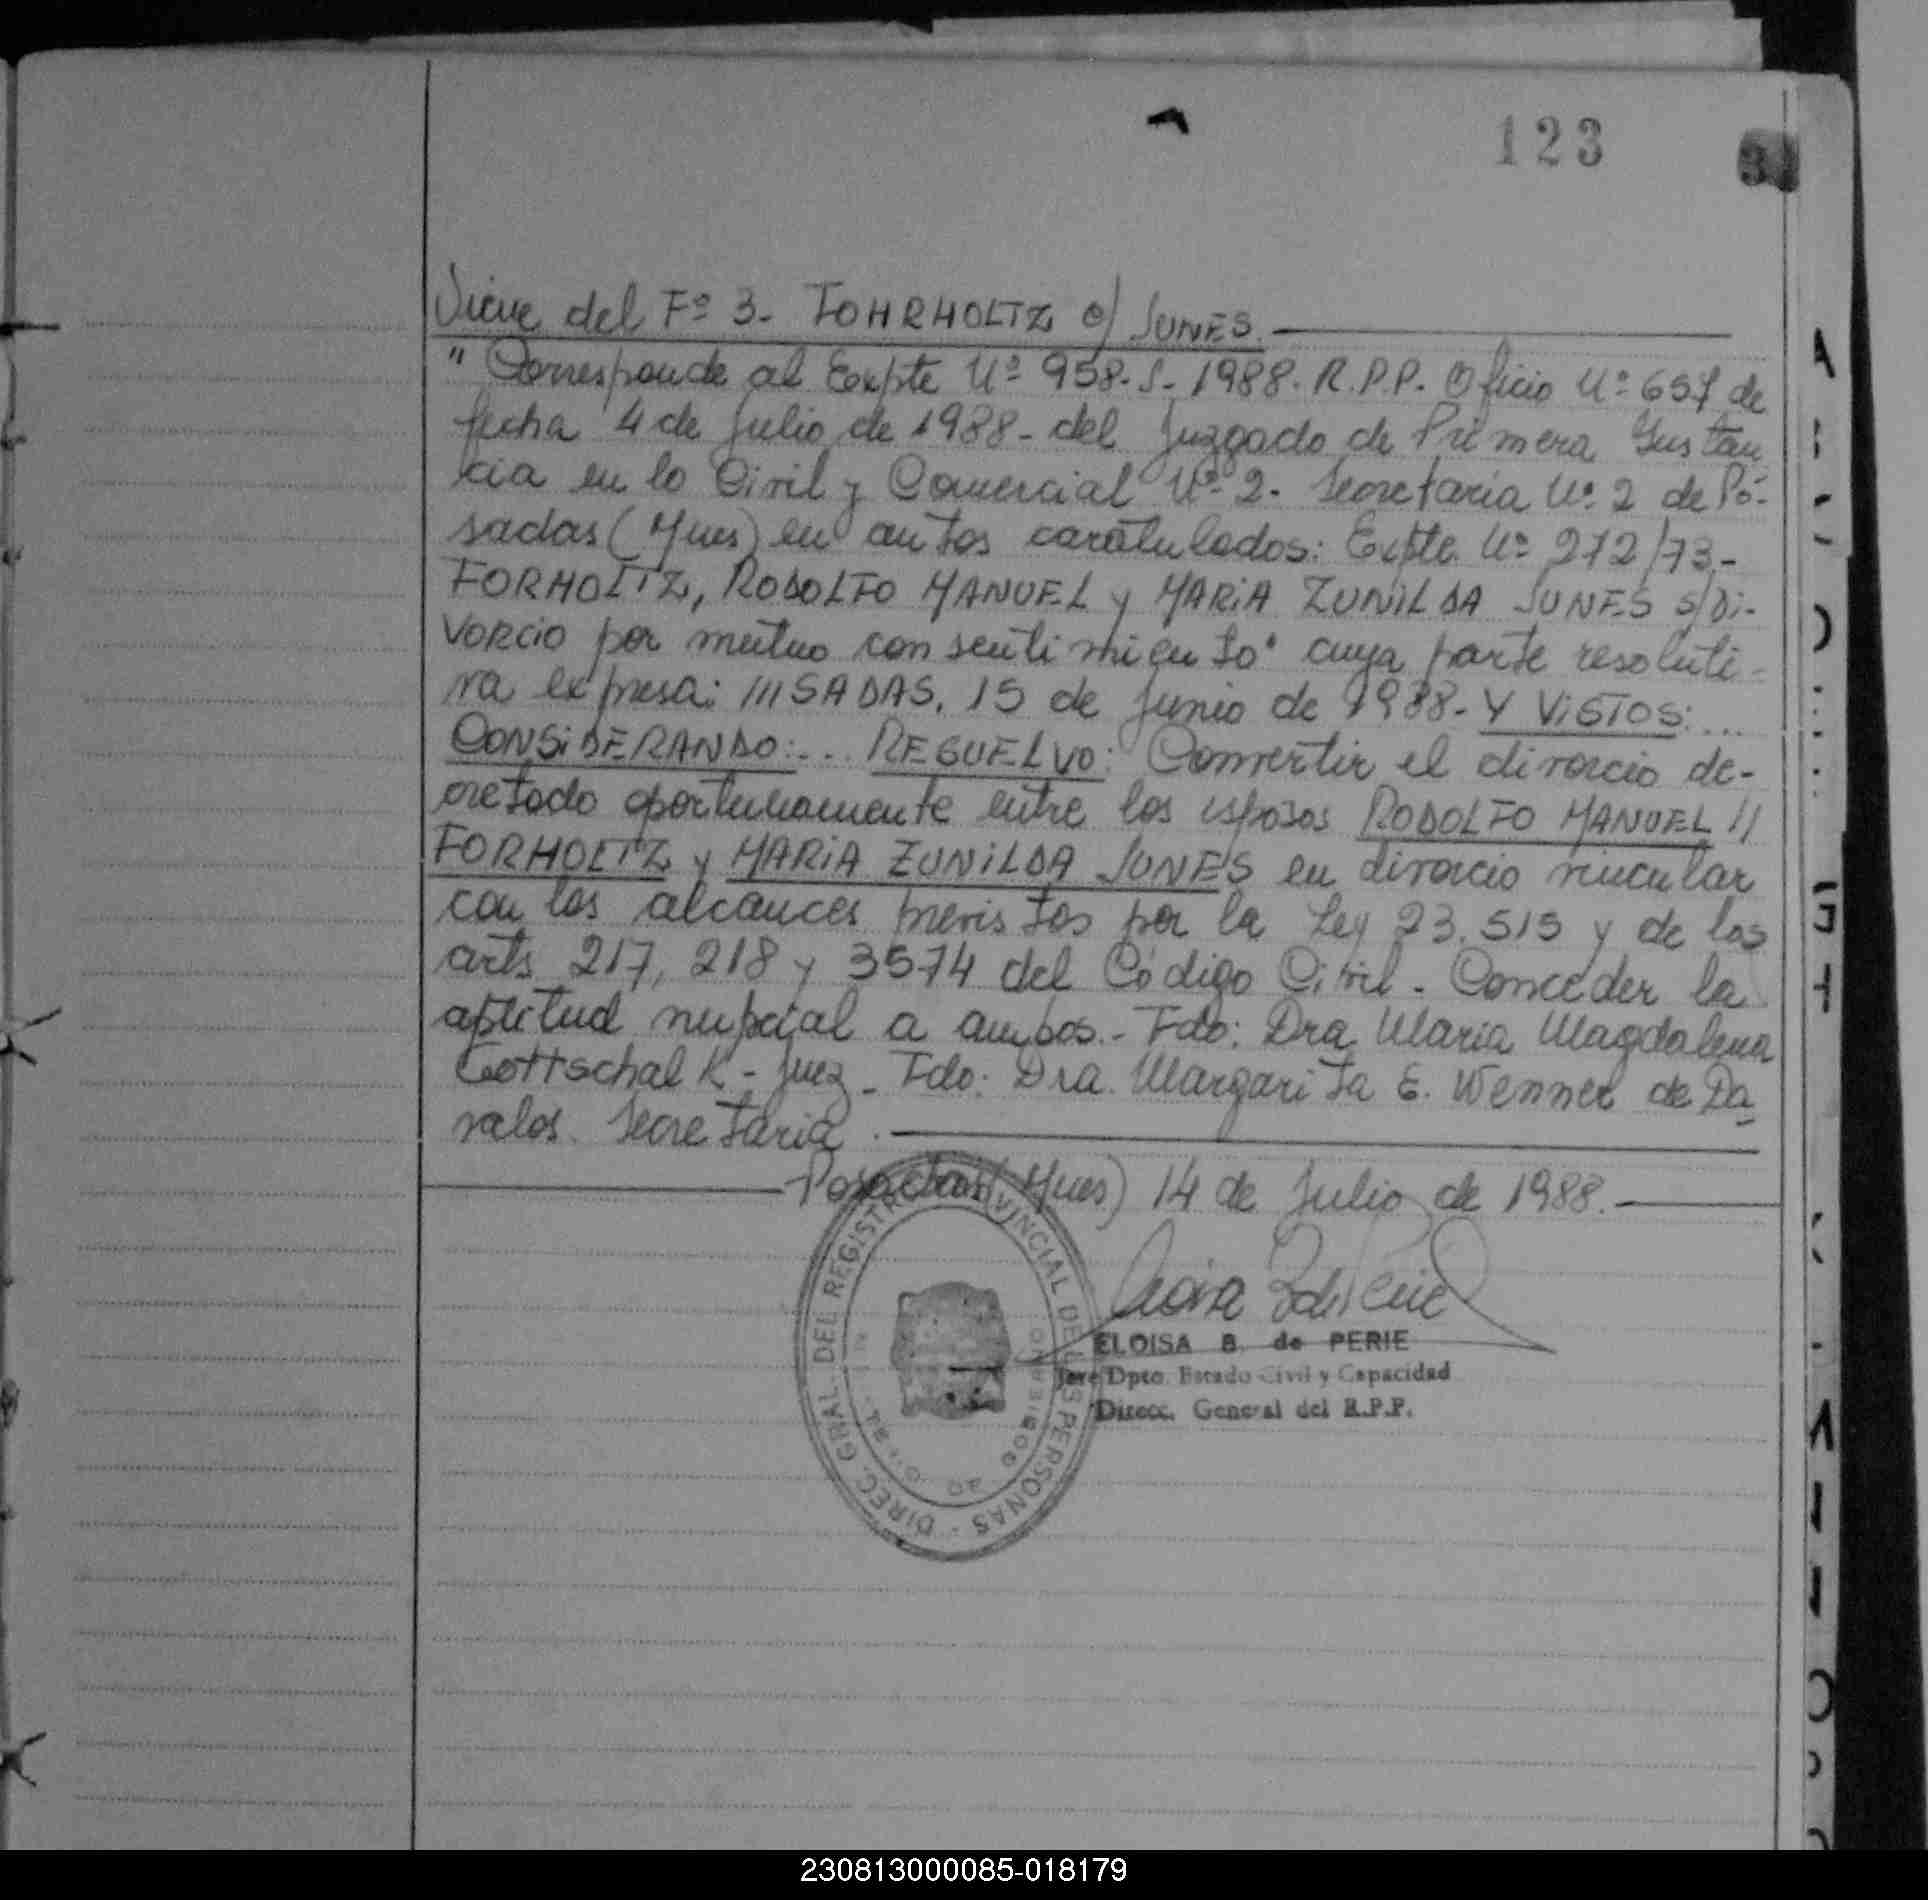 123
Viene del Fº 3- FOHRHOLTZ c/ JUNES.
"Corresponde al Expte Nº 958-J-1988. R.P.P. Oficio Nº 657 de
fecha 4 de Julio de 1988- del Juzgado de Primera Instan
cia en lo Civil y Comercial Nº 2- Secretaria Nº 2 de Po-
sadas (Mnes) en autos caratulados: Expte. Nº 272/73-
FORHOLTZ, RODOLFO MANUEL y MARIA ZUNILDA JUNES s/Di-
vorcio por mutuo consentimiento" cuya parte resoluti-
va expresa: ///SADAS, 15 de Junio de 1988- Y VISTOS: ...
CONSIDERANDO: ... RESUELVO: Convertir el divorcio de-
cretado oportunamente entre los esposos RODOLFO MANUEL //
FORHOLTZ y MARIA ZUNILDA JUNES en divorcio vincular
con los alcances previstos por la Ley 23.515 y de los
arts 217, 218 y 3574 del Código Civil. Conceder la
aptitud nupcial a ambos.- Fdo: Dra Maria Magdalena
Gottschalk - Juez - Fdo: Dra. Margarita E. Wenner de Da-
valos. Secretaria.
Posadas (Mnes) 14 de Julio de 1988.
DIREC. GRAL. DEL REGISTRO PROVINCIAL DE LAS PERSONAS
ELOISA B. de PERIE
Jefe Dpto. Estado Civil y Capacidad
Direcc. General del R.P.P.
230813000085-018179